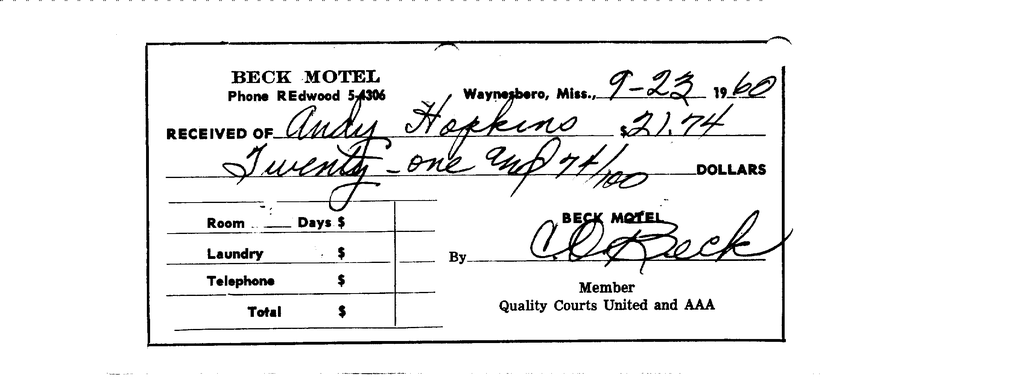 BECK MOTEL
Phone REdwood 5-4306
Waynesboro, Miss., 9-23 1960
RECEIVED OF Andy Hopkins $21.74
Twenty-one and 74/100 DOLLARS
Room Days $
Laundry $
Telephone $
Total $
BECK MOTEL
By C.O. Beck
Member
Quality Courts United and AAA